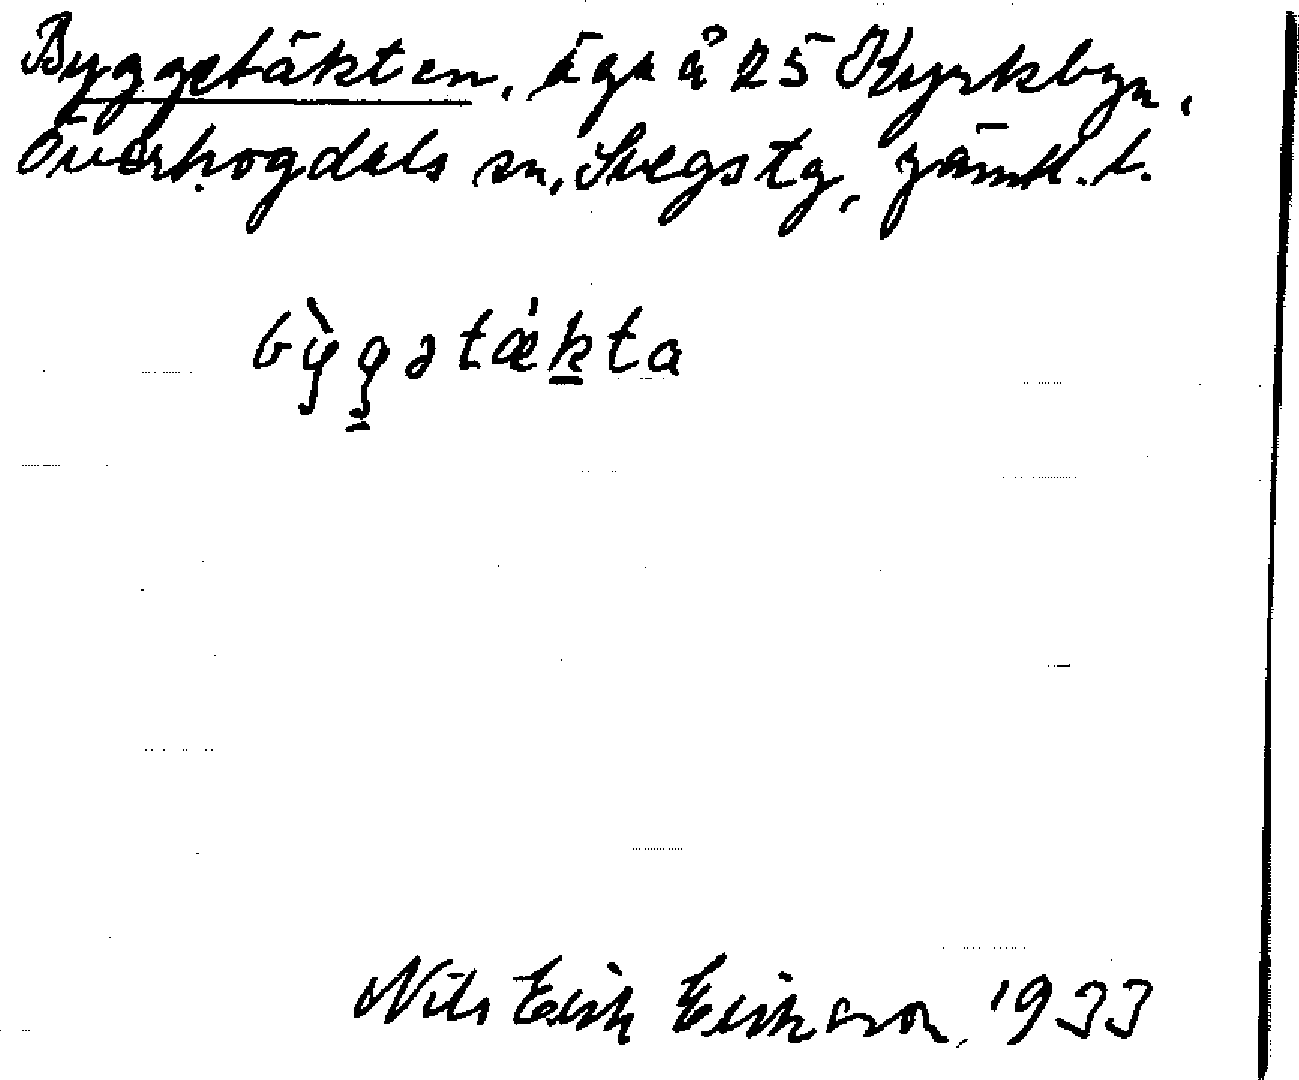 Byggetäkten, äga å 25 Kyrkbyn,
Överhogdals sn, Svegs tg, Jämtl. l.
bỳgətǽkta
Nils Erik Erikson, 1933